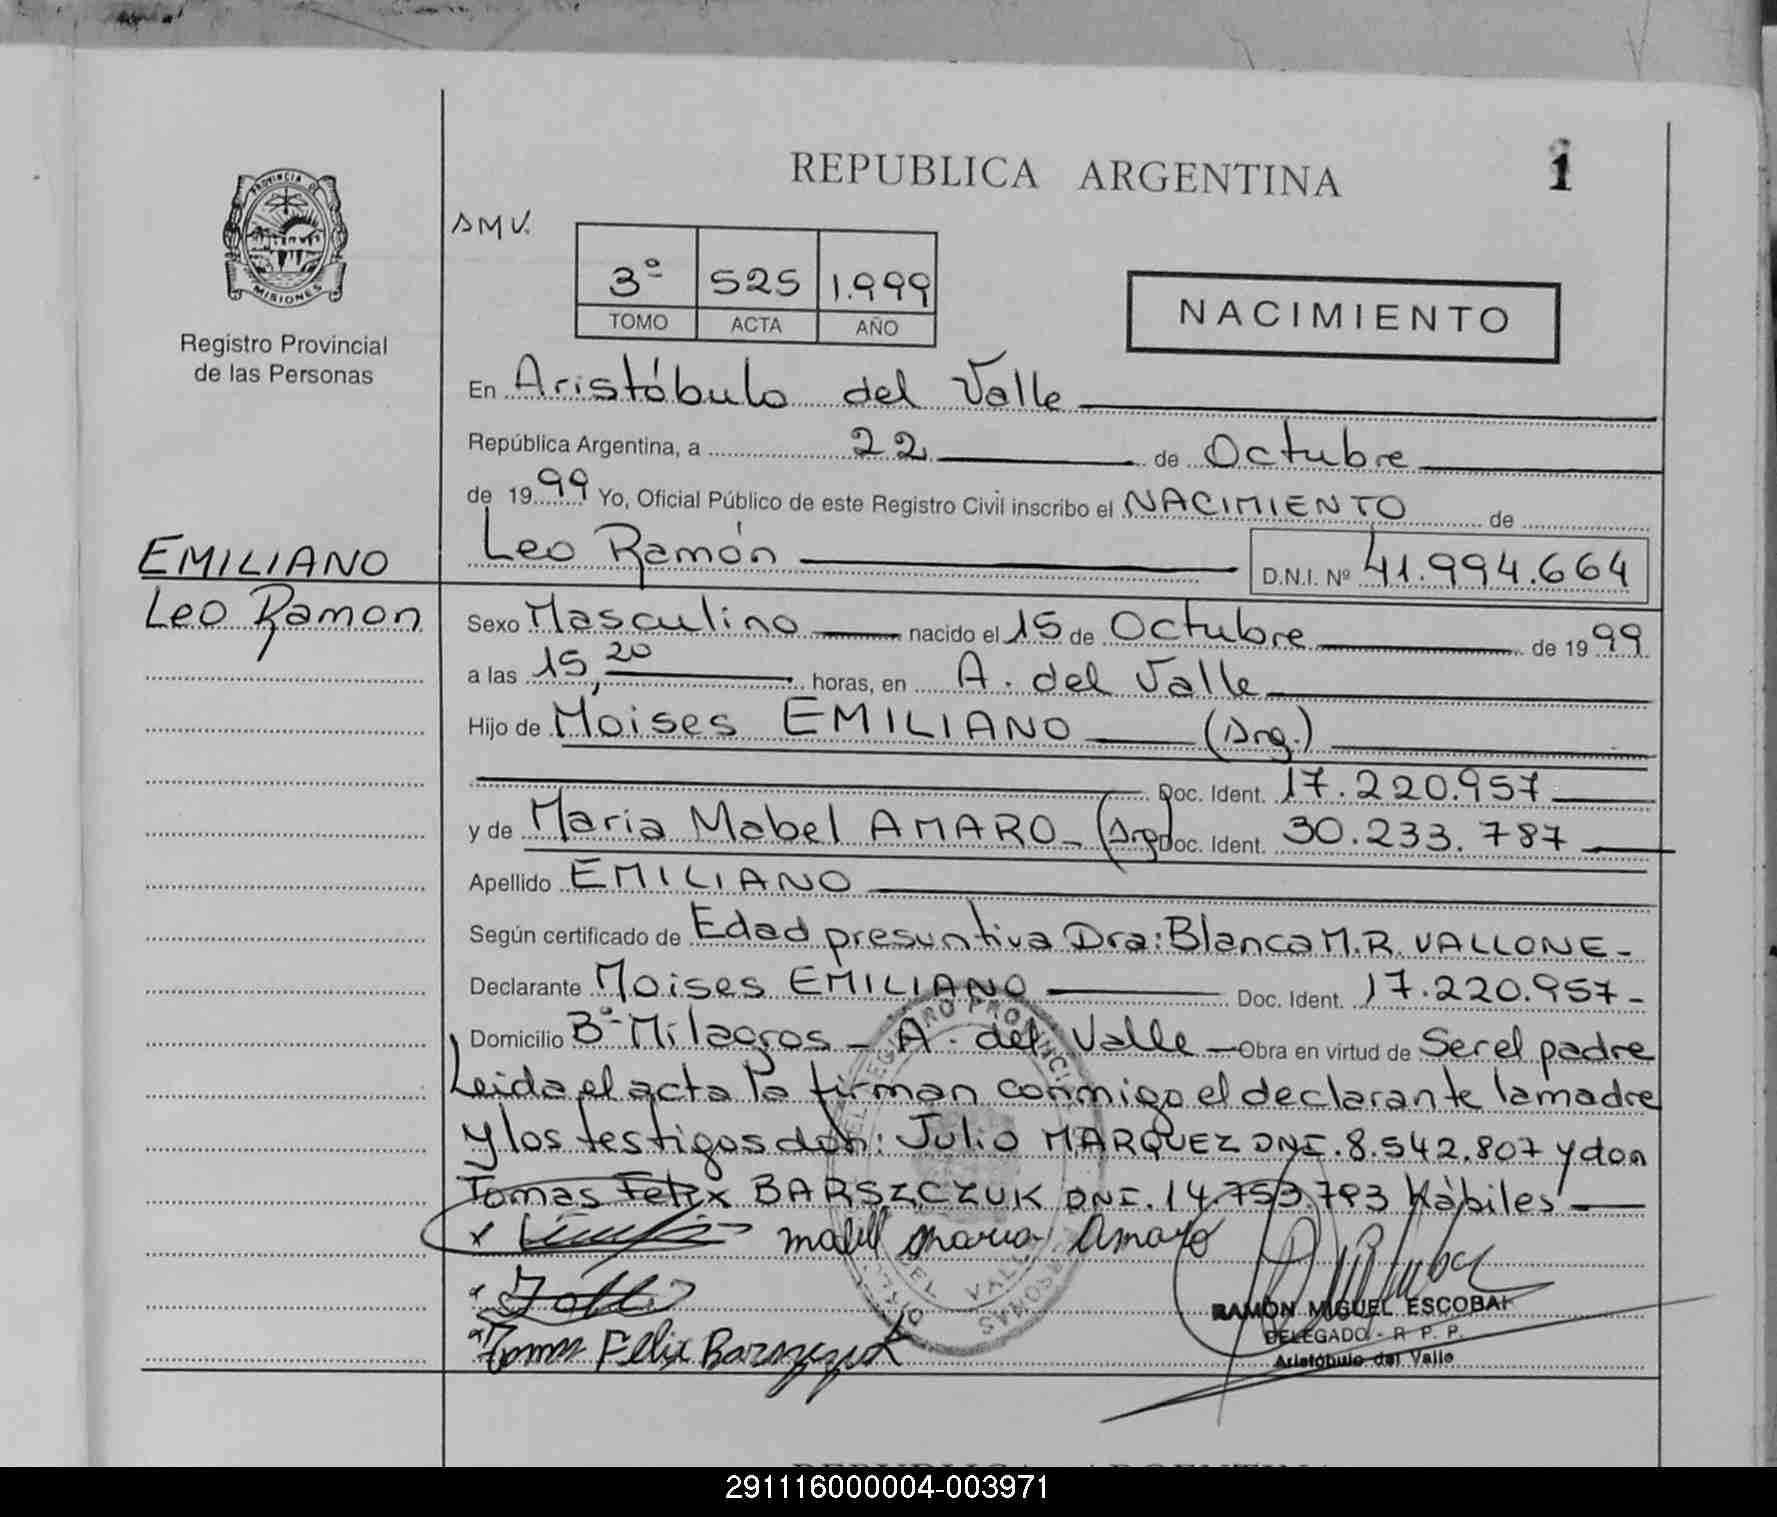 REPUBLICA ARGENTINA
1
PROVINCIA DE
MISIONES
Registro Provincial
de las Personas
SMV.
3º 525 1.999
TOMO ACTA AÑO
NACIMIENTO
En Aristóbulo del Valle
República Argentina, a 22 de Octubre
de 1999 Yo, Oficial Público de este Registro Civil inscribo el NACIMIENTO de
Leo Ramón D.N.I. Nº 41.994.664
EMILIANO
Leo Ramon
Sexo Masculino nacido el 15 de Octubre de 1999
a las 15,20 horas, en A. del Valle
Hijo de Moises EMILIANO (Arg.)
Doc. Ident. 17.220.957
y de Maria Mabel AMARO - (Arg) Doc. Ident. 30.233.787
Apellido EMILIANO
Según certificado de Edad presuntiva Dra: Blanca M.R. VALLONE -
Declarante Moises EMILIANO Doc. Ident. 17.220.957-
Domicilio Bº Milagros - A. del Valle - Obra en virtud de Ser el padre
Leida el acta la firman conmigo el declarante la madre
y los testigos don: Julio MARQUEZ DNI. 8.542.807 y don
Tomas Felix BARSZCZUK DNI. 14.753.793 Hàbiles
x mabel maria Amaro
Tomas Felix Barszczuk
RAMÓN MIGUEL ESCOBAR
DELEGADO - R P. P.
Aristóbulo del Valle
REPUBLICA ARGENTINA
291116000004-003971